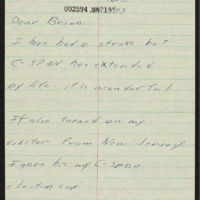 002594 JAN 21 93
Dear Brian:
I have had a stroke but
C-SPAN has extended
my life. it is wonderful
It also turned on my
visitor from New Jersey
I gave her my C-Span
election cup